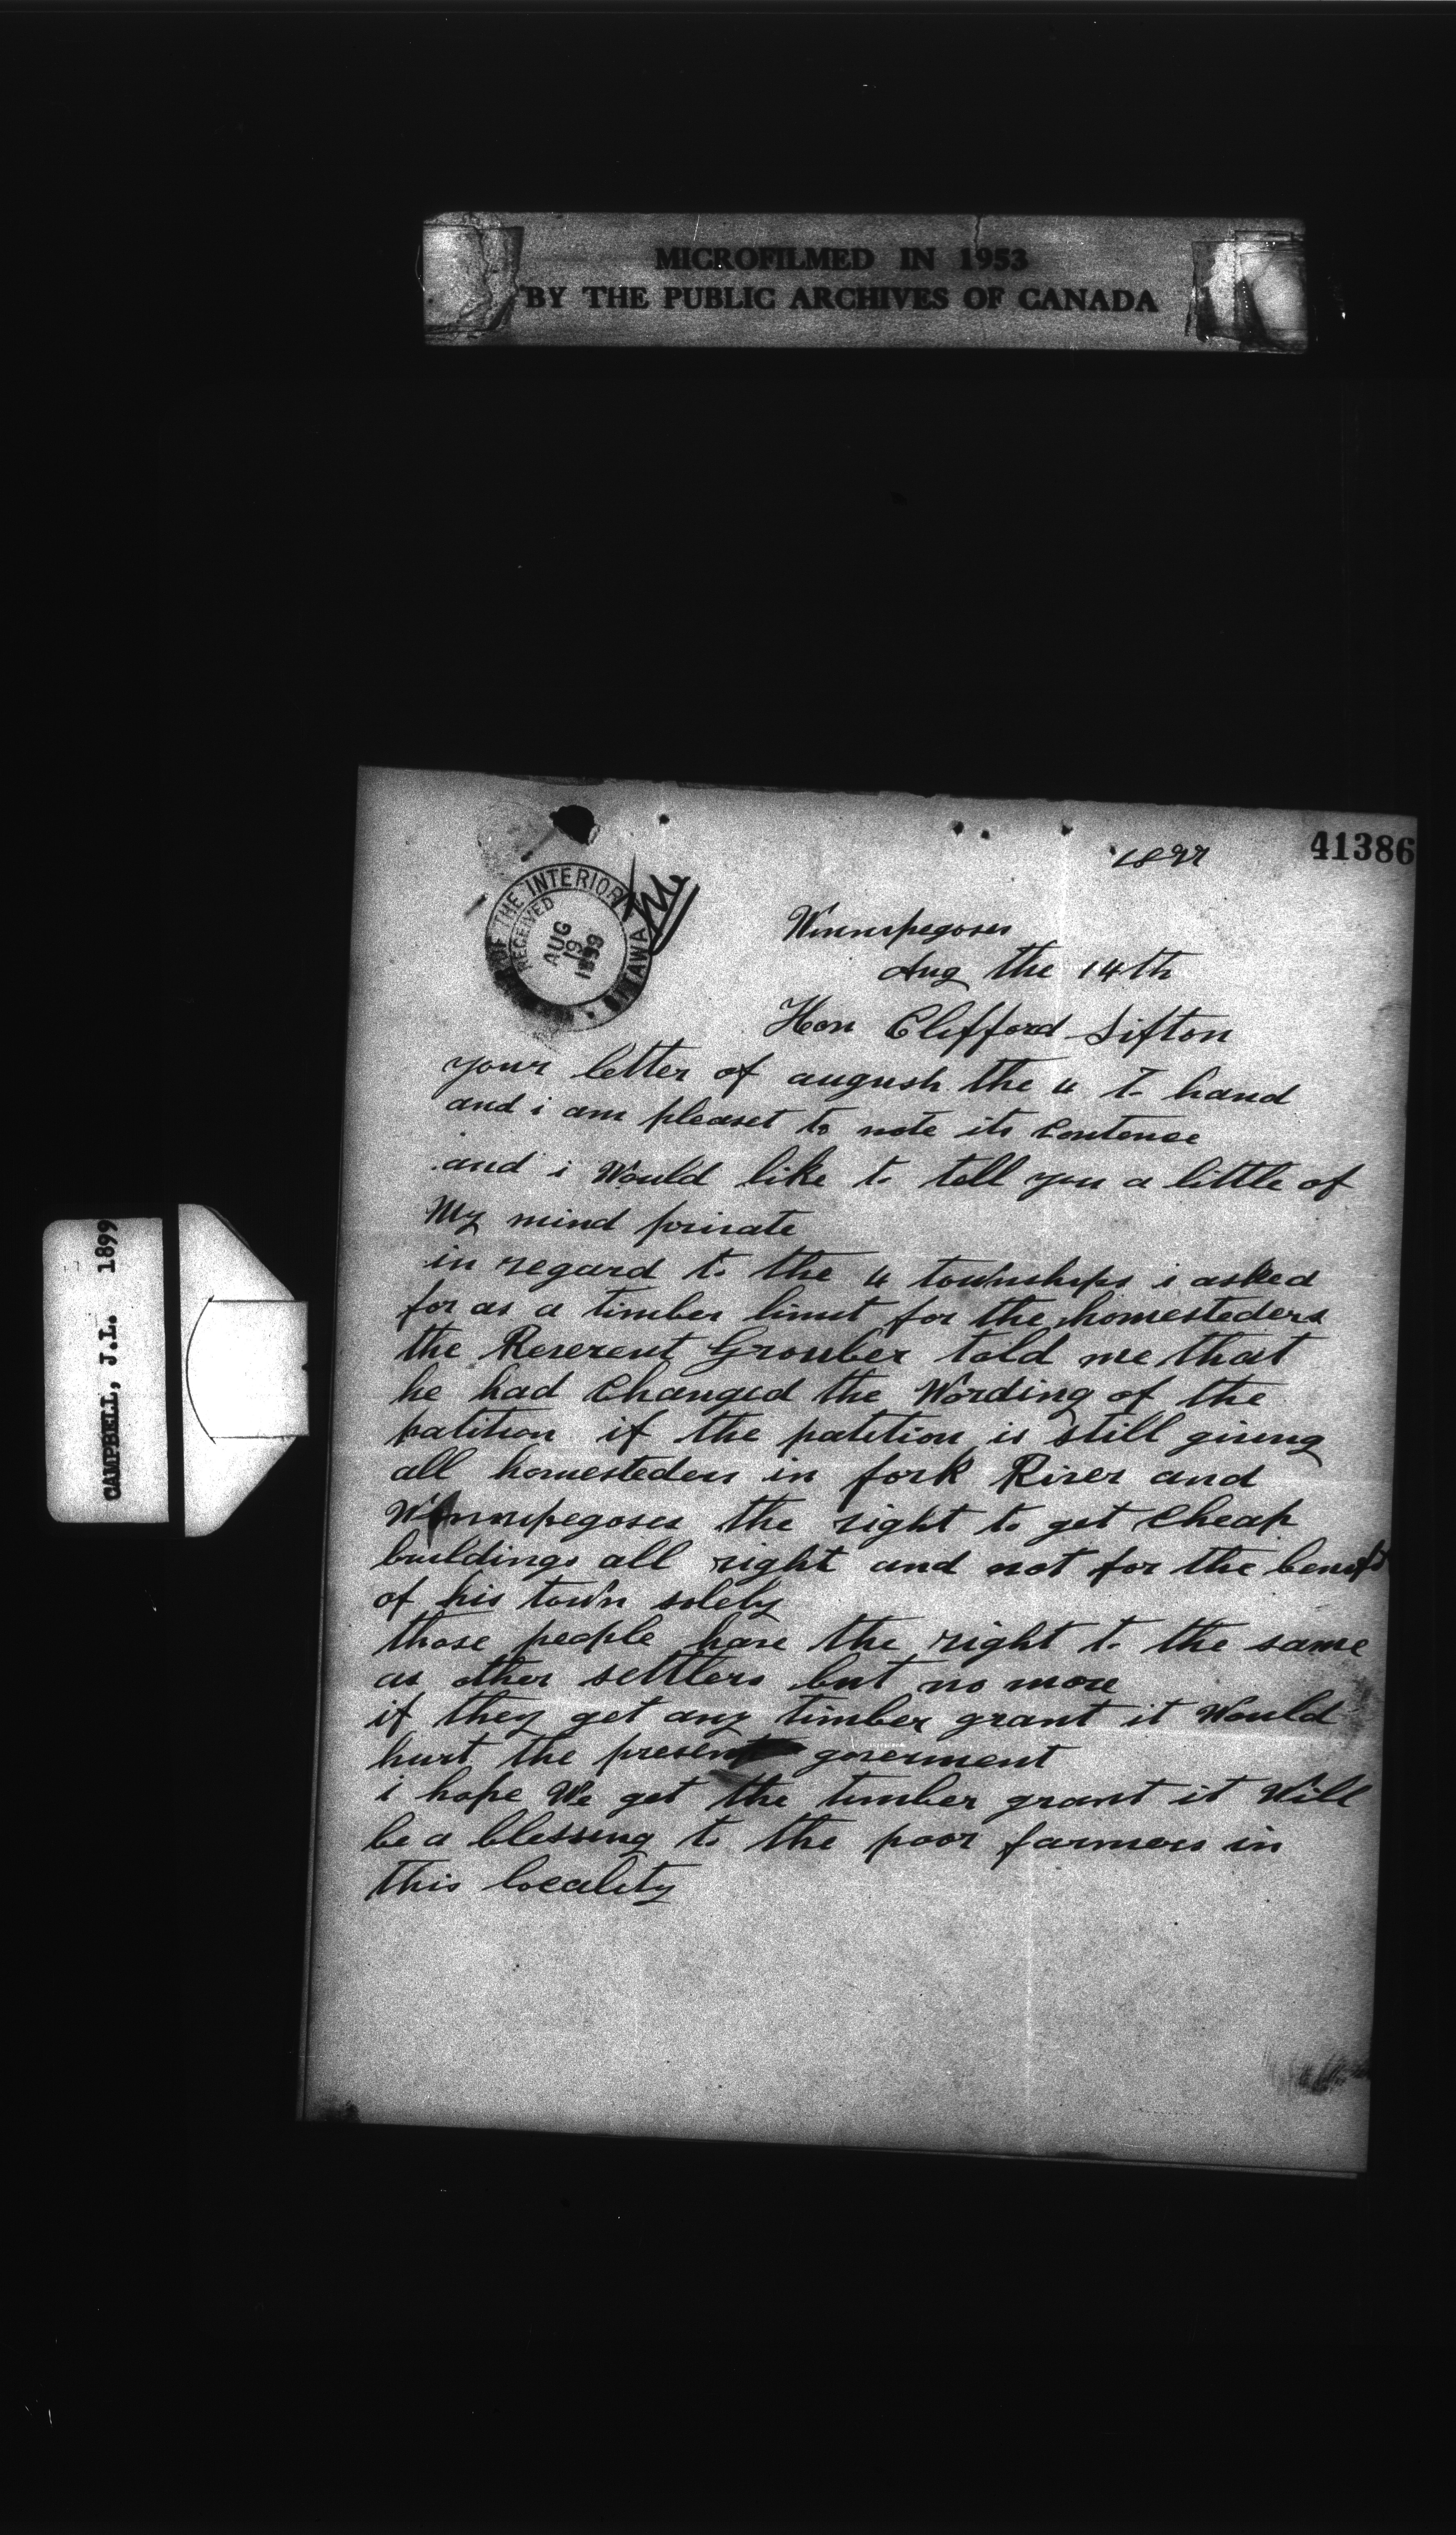 MICROFILMED IN 1953
BY THE PUBLIC ARCHIVES OF CANADA
41386
1899
OF THE INTERIOR
RECEIVED
AUG
19
1899
OTTAWA
Winnipegoses
Aug the 14th
Hon Clifford Sifton
your letter of august the 4 to hand
and i am pleaset to note its Contence
and i Would like to tell you a little of
My mind private
in regard to the 4 townships i asked
for as a timber limit for the homesteders
the Reverent Grouber told me that
he had Changed the Wording of the
patition if the patetion is still giving
all homesteders in fork River and
Winnipegoses the right to get Cheap
buildings all right and not for the benefit
of his town solely
those people have the right to the same
as other settlers but no more
if they get any timber grant it Would
hurt the present goverment
i hope We get the timber grant it Will
be a blessing to the poor farmers in
this locality
CAMPBELL, J.L. 1899